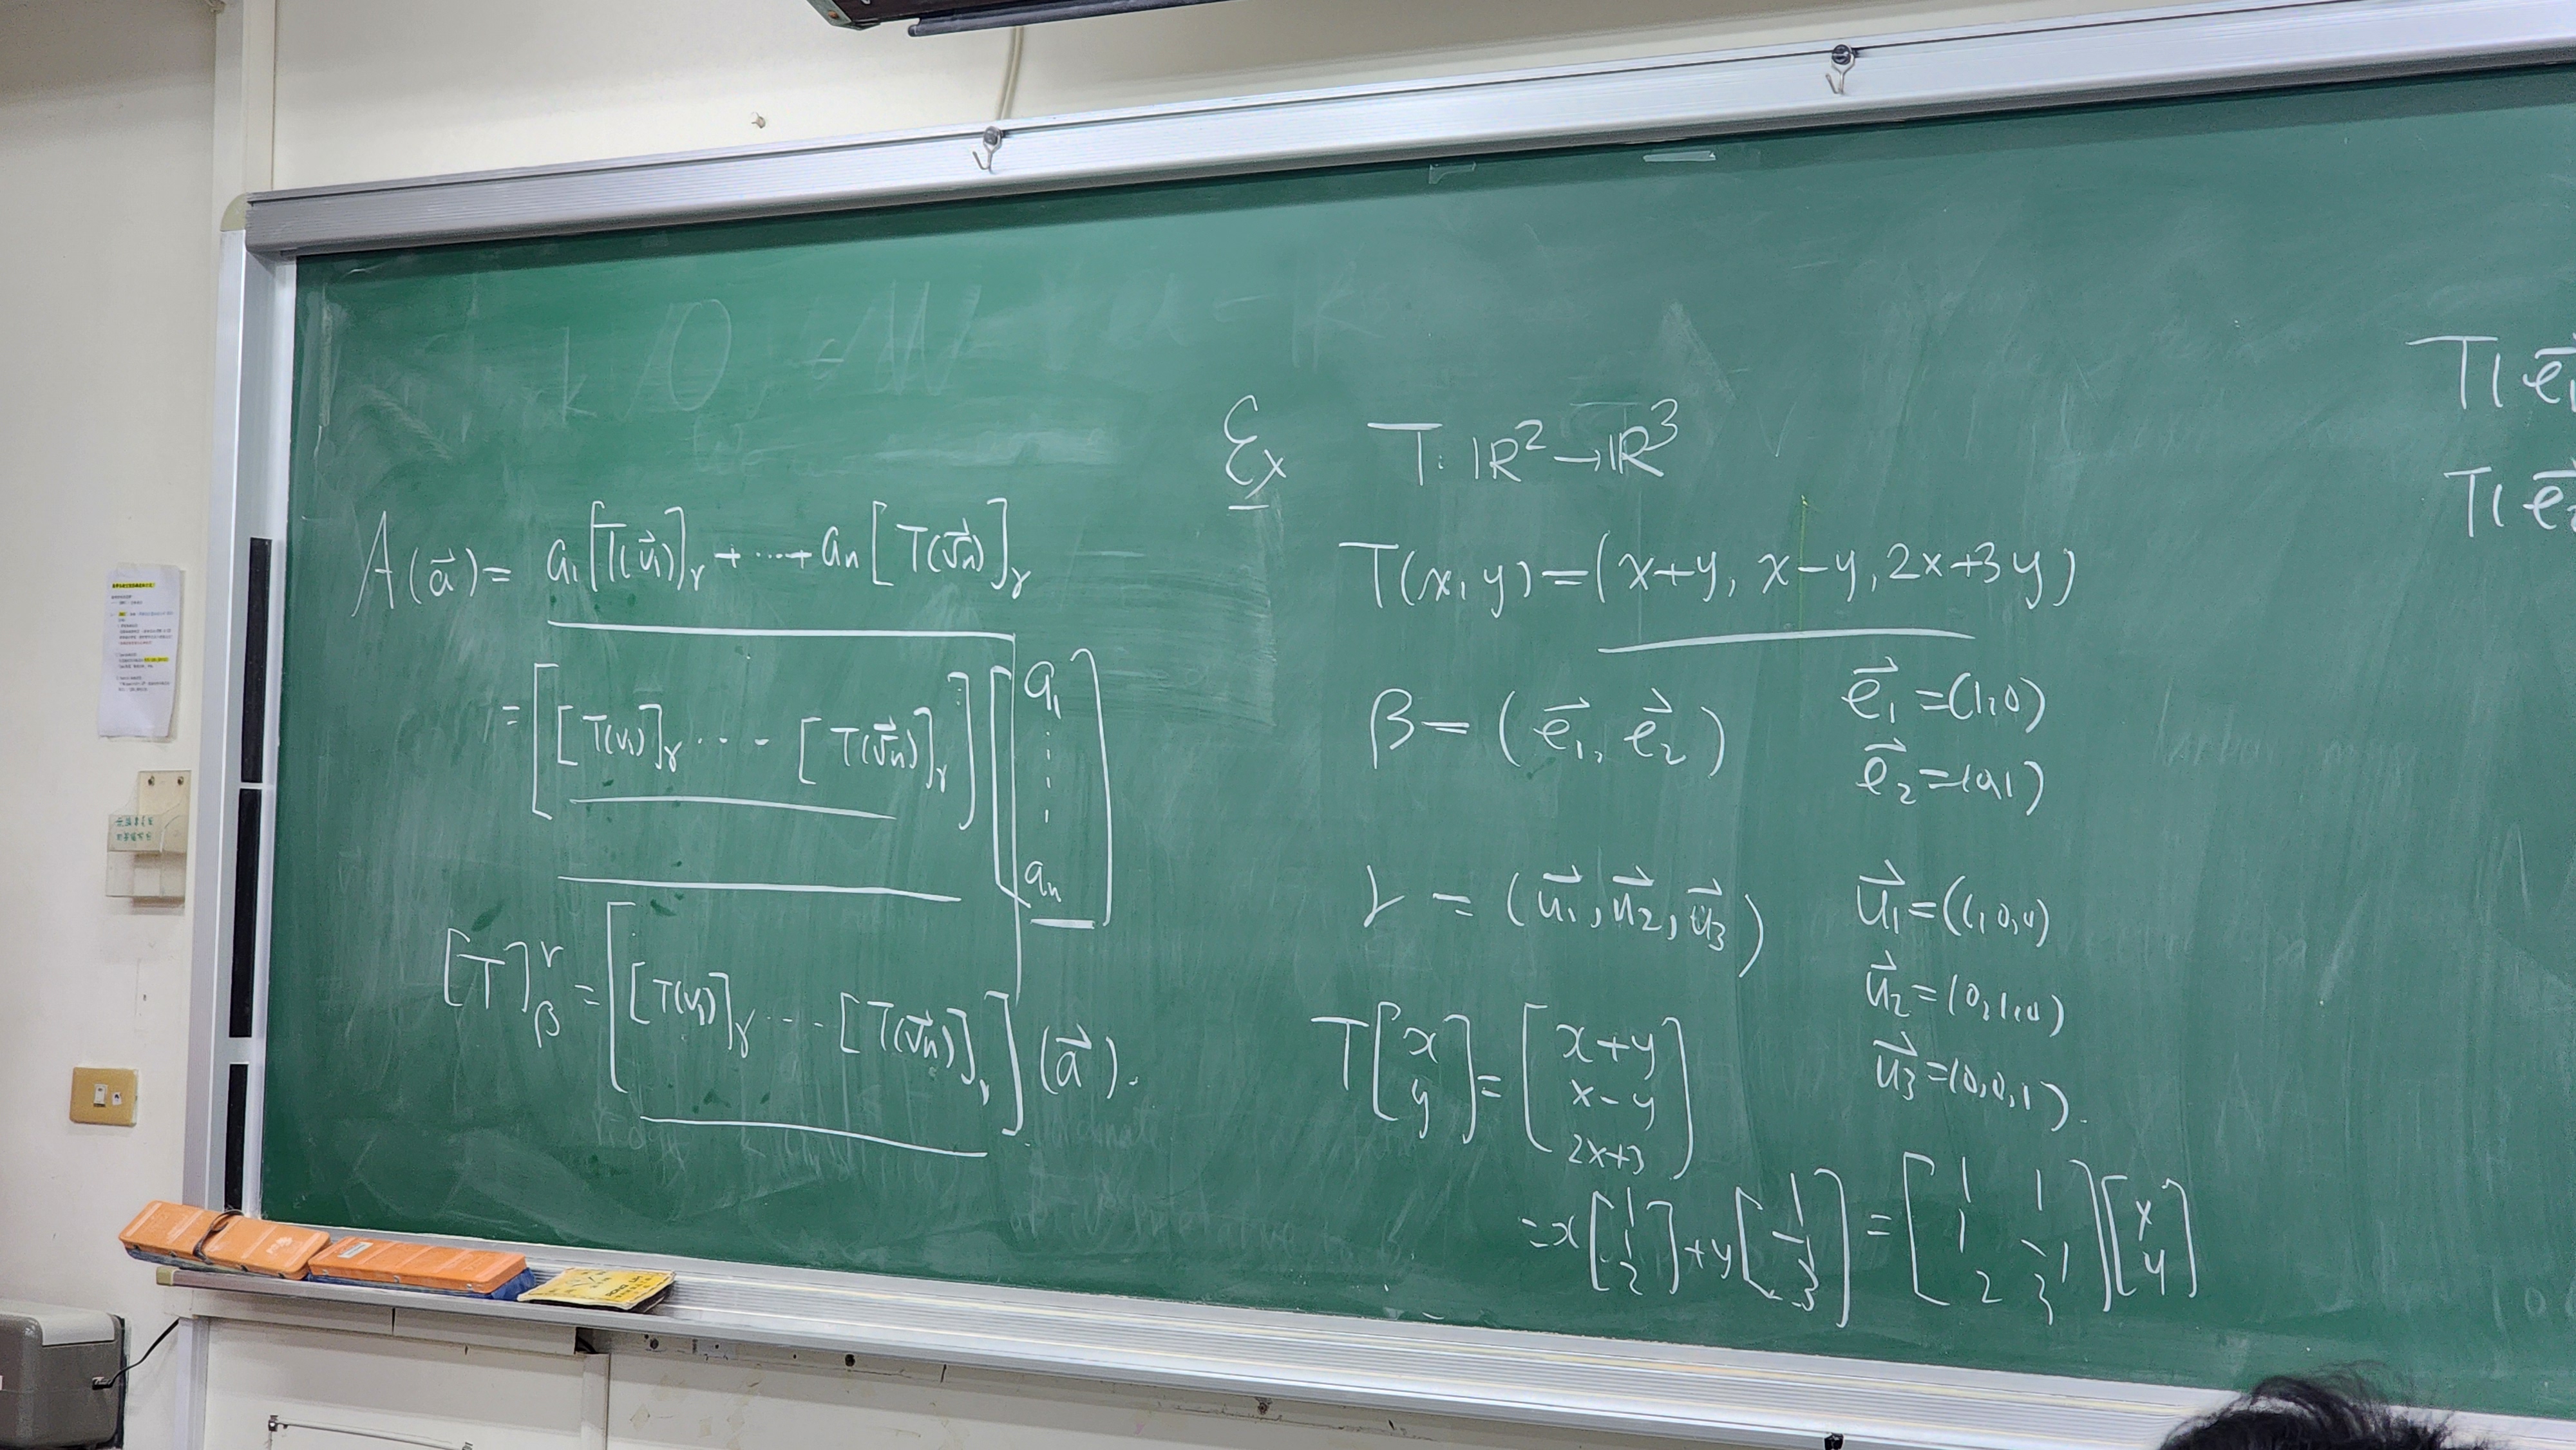 A(a⃗) = a₁[T(u⃗)]ᵧ + ⋯ + aₙ[T(v⃗ₙ)]ᵧ
= [[T(v₁)]ᵧ ⋯ [T(v⃗ₙ)]ᵧ] [a₁ ⋮ aₙ]
[T]ᵧβ = [[T(v₁)]ᵧ ⋯ [T(v⃗ₙ)]ᵧ] (a⃗).
Ex T: ℝ² → ℝ³
T(x, y) = (x+y, x-y, 2x+3y)
β = (e⃗₁, e⃗₂) e⃗₁ = (1,0)
e⃗₂ = (0,1)
γ = (u⃗₁, u⃗₂, u⃗₃) u⃗₁ = (1,0,0)
u⃗₂ = (0,1,0)
u⃗₃ = (0,0,1).
T[x y] = [x+y x-y 2x+3]
= x[1 1 2] + y[1 -1 3] = [1 1 1 -1 2 3][x y]
T(e⃗₁
T(e⃗₂